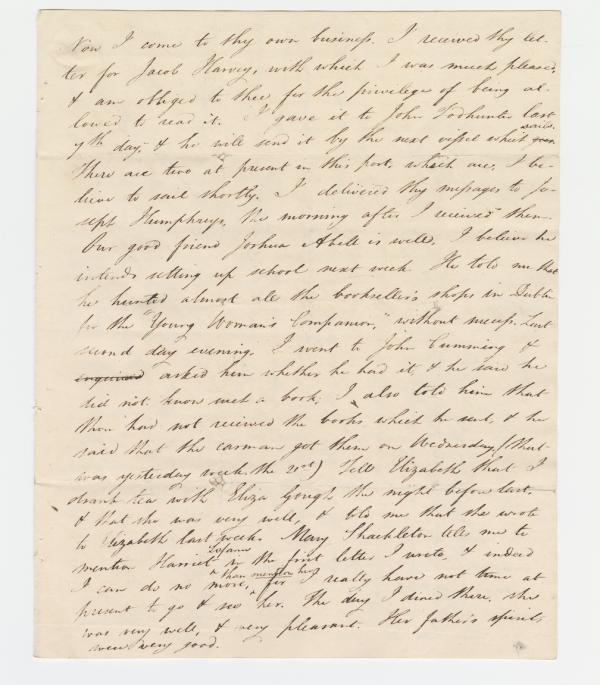 Now I come to thy own business. I received thy let-
ter for Jacob Harvey, with which I was much pleased,
& am obliged to thee for the privilege of being al-
lowed to read it. I gave it to John Todhunter last
7th day, & he will send it by the next vessel which sails.
There are two at present in this port, which are, I be-
lieve to sail shortly. I delivered thy messages to Jo-
seph Humphreys, the morning after I received them.
Our good friend Joshua Abell is well, I believe he
intends setting up school next week. He told me that
he hunted almost all the bookseller's shops in Dublin
for the "Young Woman's Companion," without success. Last
second day evening, I went to John Cumming &
enquired asked him whether he had it, & he said he
did not know such a book; I also told him that
thou had not received the books which he sent, & he
said that the carman got them on Wednesday, (that
was yesterday week, the 20th) Tell Elizabeth that I
drank tea with Eliza Gough the night before last,
& that she was very well, & told me that she wrote
to Elizabeth last week. Mary Shackleton tells me to
mention Harriet in the first letter I wrote, & indeed
I can do no more, than mention her, for I really have not time at
present to go & see her. The day I dined there, she
was very well, & very pleasant. Her father's spirits
were very good.